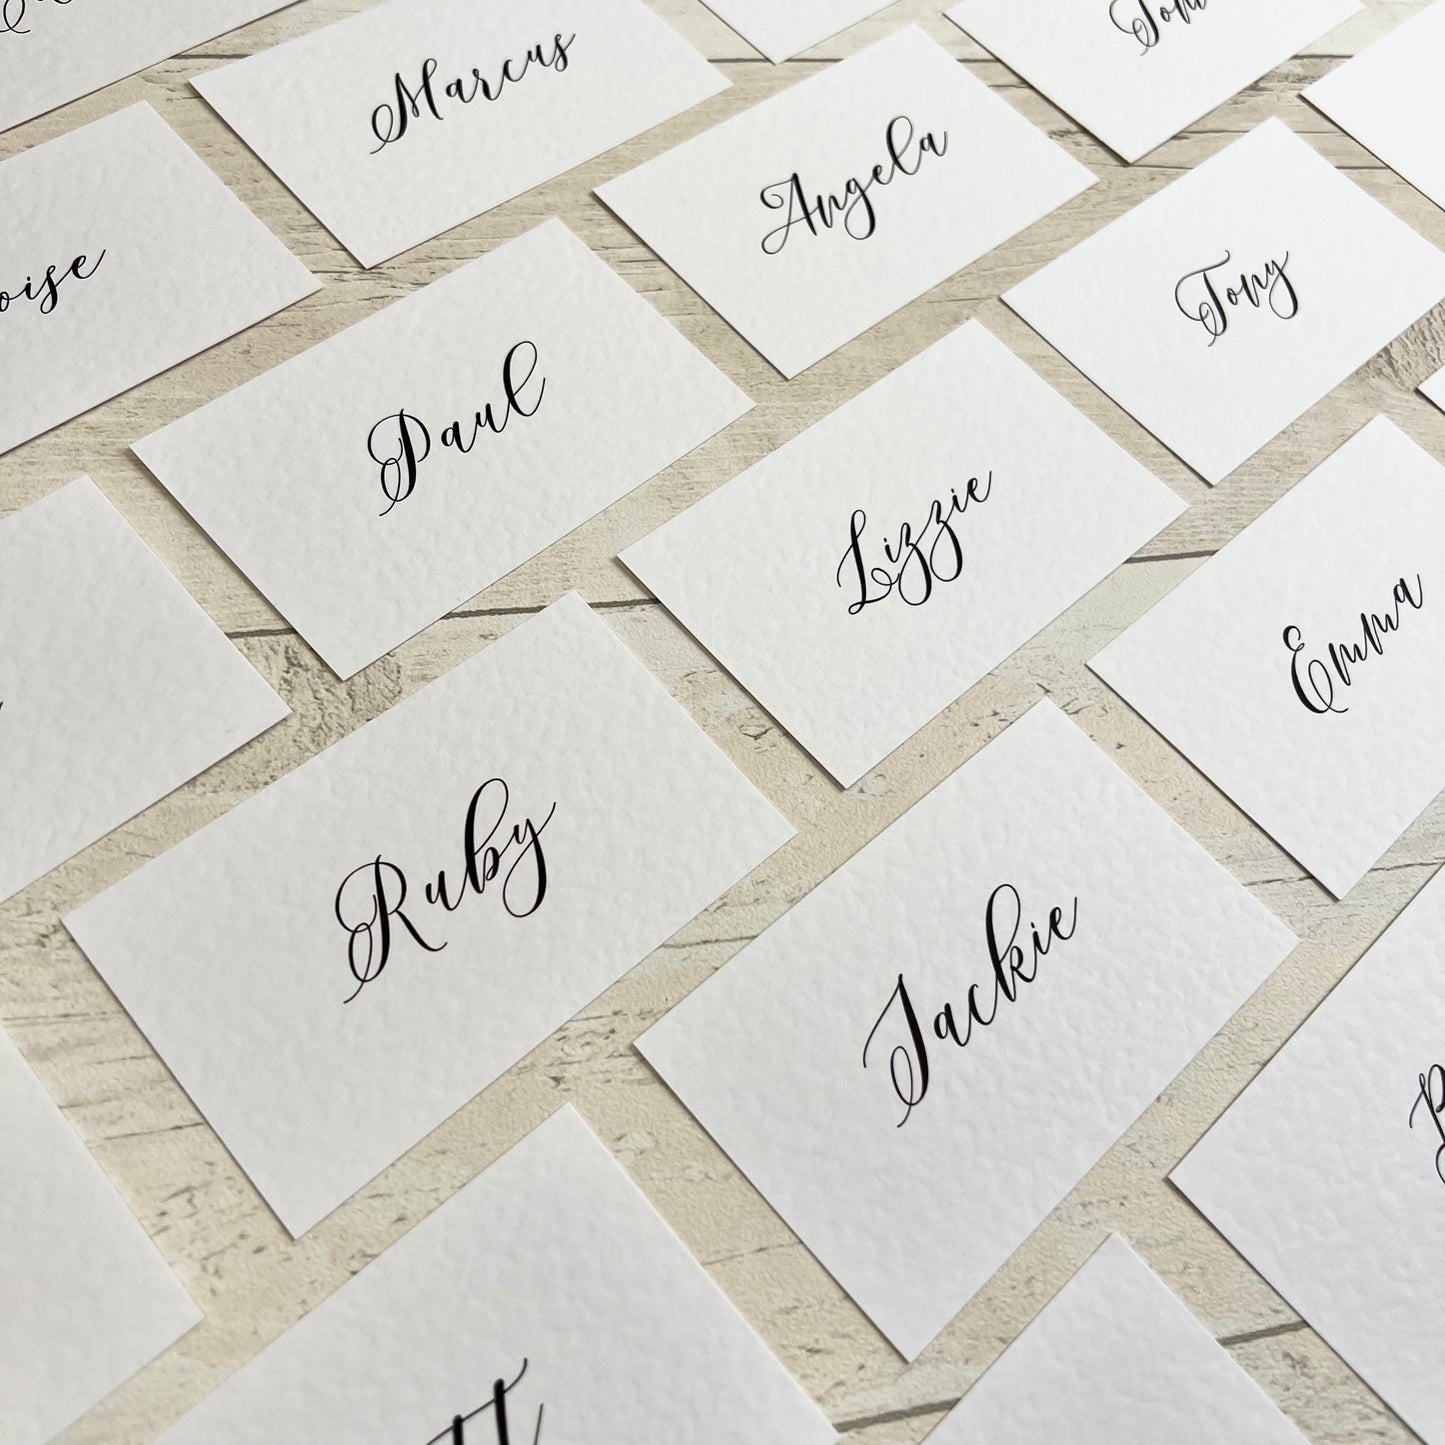 Marcus
Tom
Angela
Tony
Paul
Lizzie
Emma
Ruby
Jackie